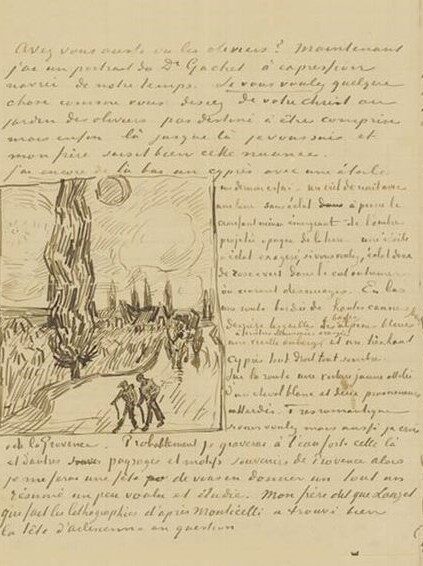 Avez vous aussi vu les oliviers? Maintenant
j'ai un portrait du Dr Gachet à expression
navrée de notre temps. Si vous voulez quelque
chose comme vous disiez de votre Christ au
jardin des oliviers pas destiné à être compris
mais enfin là jusque là je vous suis et
mon frère saisit bien cette nuance.
J'ai encore de là bas un cyprès avec une étoile
un dernier essai - un ciel de nuit avec
une lune sans éclat à peine le
croissant mince émergeant de l'ombre
projetée opaque de la terre - une étoile
à éclat exagéré, si vous voulez, éclat doux
de rose & vert dans le ciel outremer
où courent des nuages. En bas
une route bordée de hautes cannes
jaunes derrière lesquelles les basses alpines bleues
une vieille auberge à fenêtres illuminées orangée et un très haut
cyprès tout droit tout sombre.
Sur la route une voiture jaune attelée
d'un cheval blanc et deux promeneurs
attardés. Très romantique
si vous voulez mais aussi je crois
de la Provence Probablement je graverai à l'eau forte celle là
et d'autres paysages et motifs souvenirs de Provence alors
je me ferai une fête de vous en donner un tout un
résumé un peu voulu et étudié. Mon frère dit que Lauzet
qui fait les lithographies d'après Monticelli a trouvé bien
la tête d'arlésienne en question